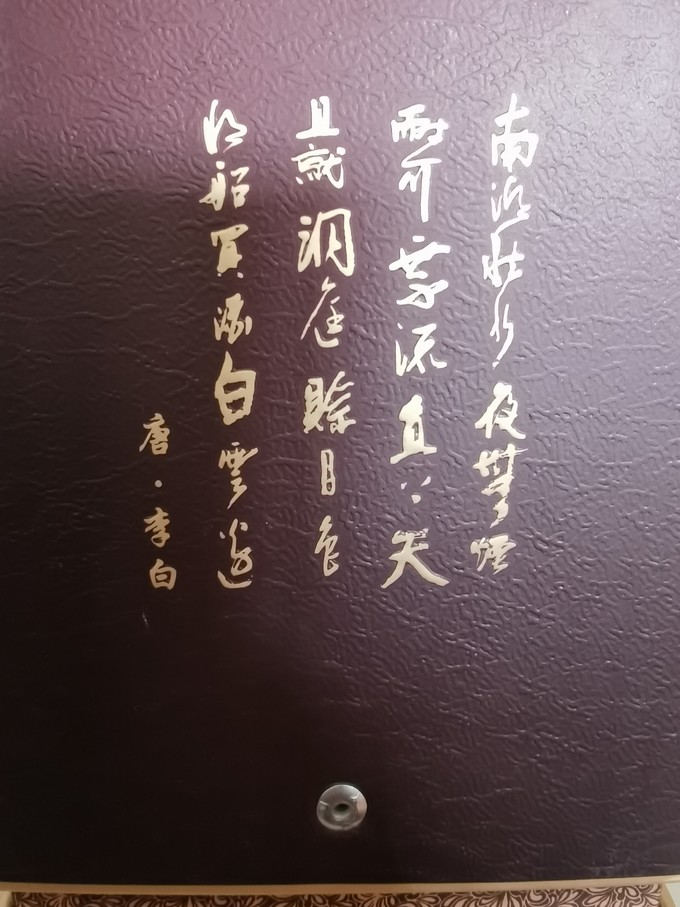 南湖秋水夜無煙
耐可乘流直上天
且就洞庭賒月色
將船買酒白雲邊
唐·李白